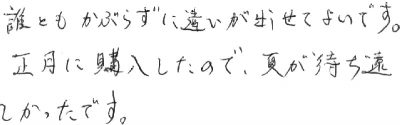 誰ともかぶらずに違いが出せてよいです。
正月に購入したので、夏が待ち遠
しかったです。